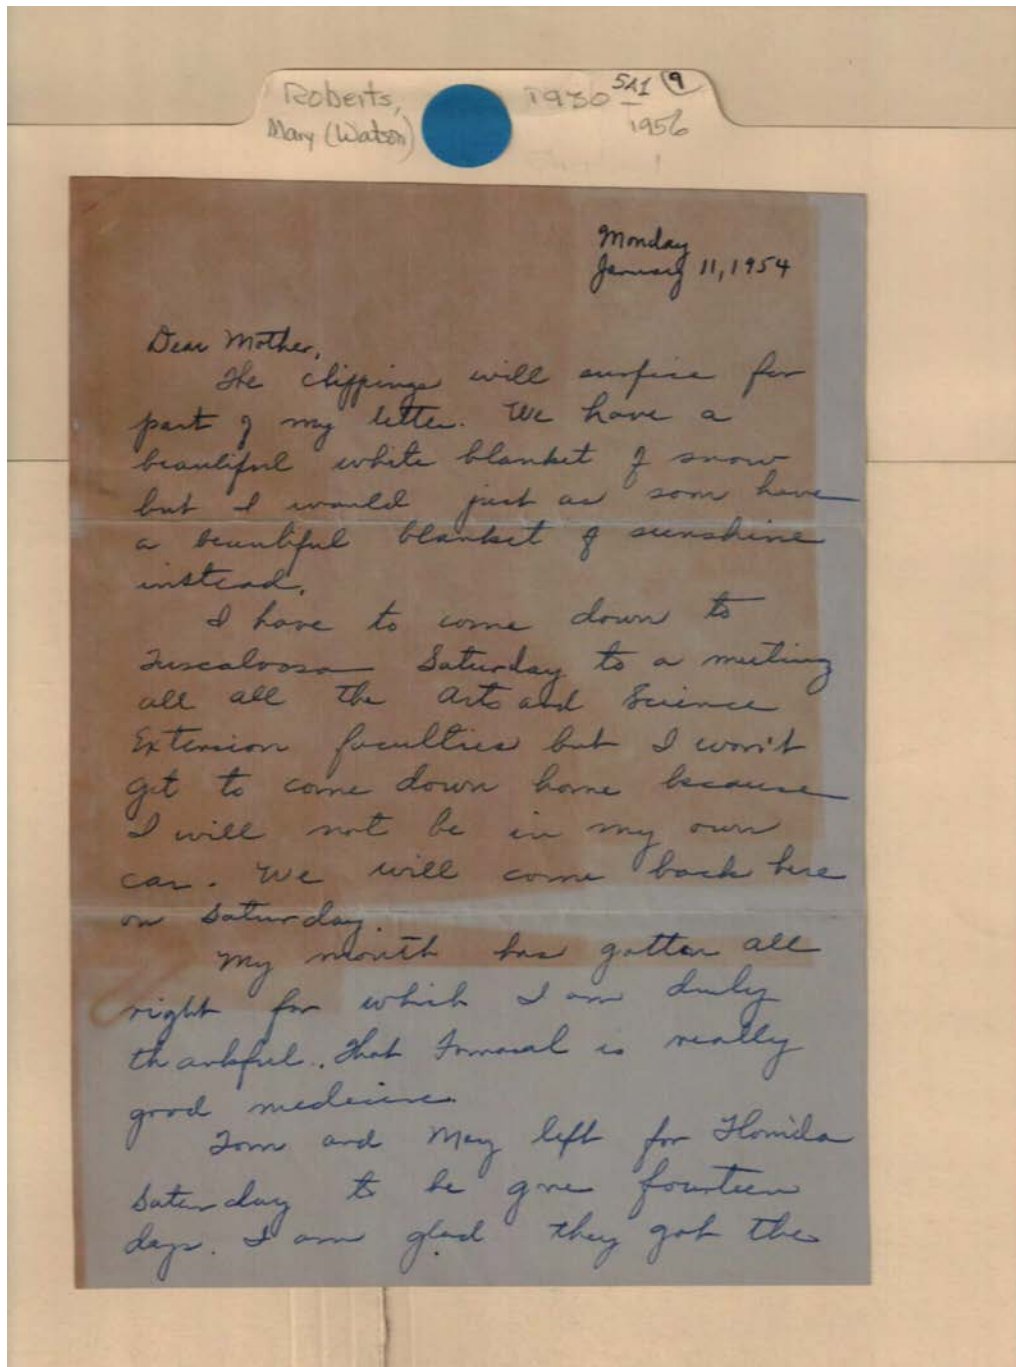 Roberts,
Mary (Watson)
1930 5A1 9
–
1956
Monday
January 11, 1954
Dear Mother,
The clippings will surfice for
part of my letter. We have a
beautiful white blanket of snow
but I would just as soon have
a beautiful blanket of sunshine
instead.
I have to come down to
Tuscaloosa Saturday to a meeting
all all the Arts and Science
Extension faculties but I won't
get to come down home because
I will not be in my own
car. We will come back here
on Saturday.
My mouth has gotten all
right for which I am duly
thankful. That is really
good medicine.
Tom and May left for Florida
Saturday to be gone fourteen
days. I am glad they got the